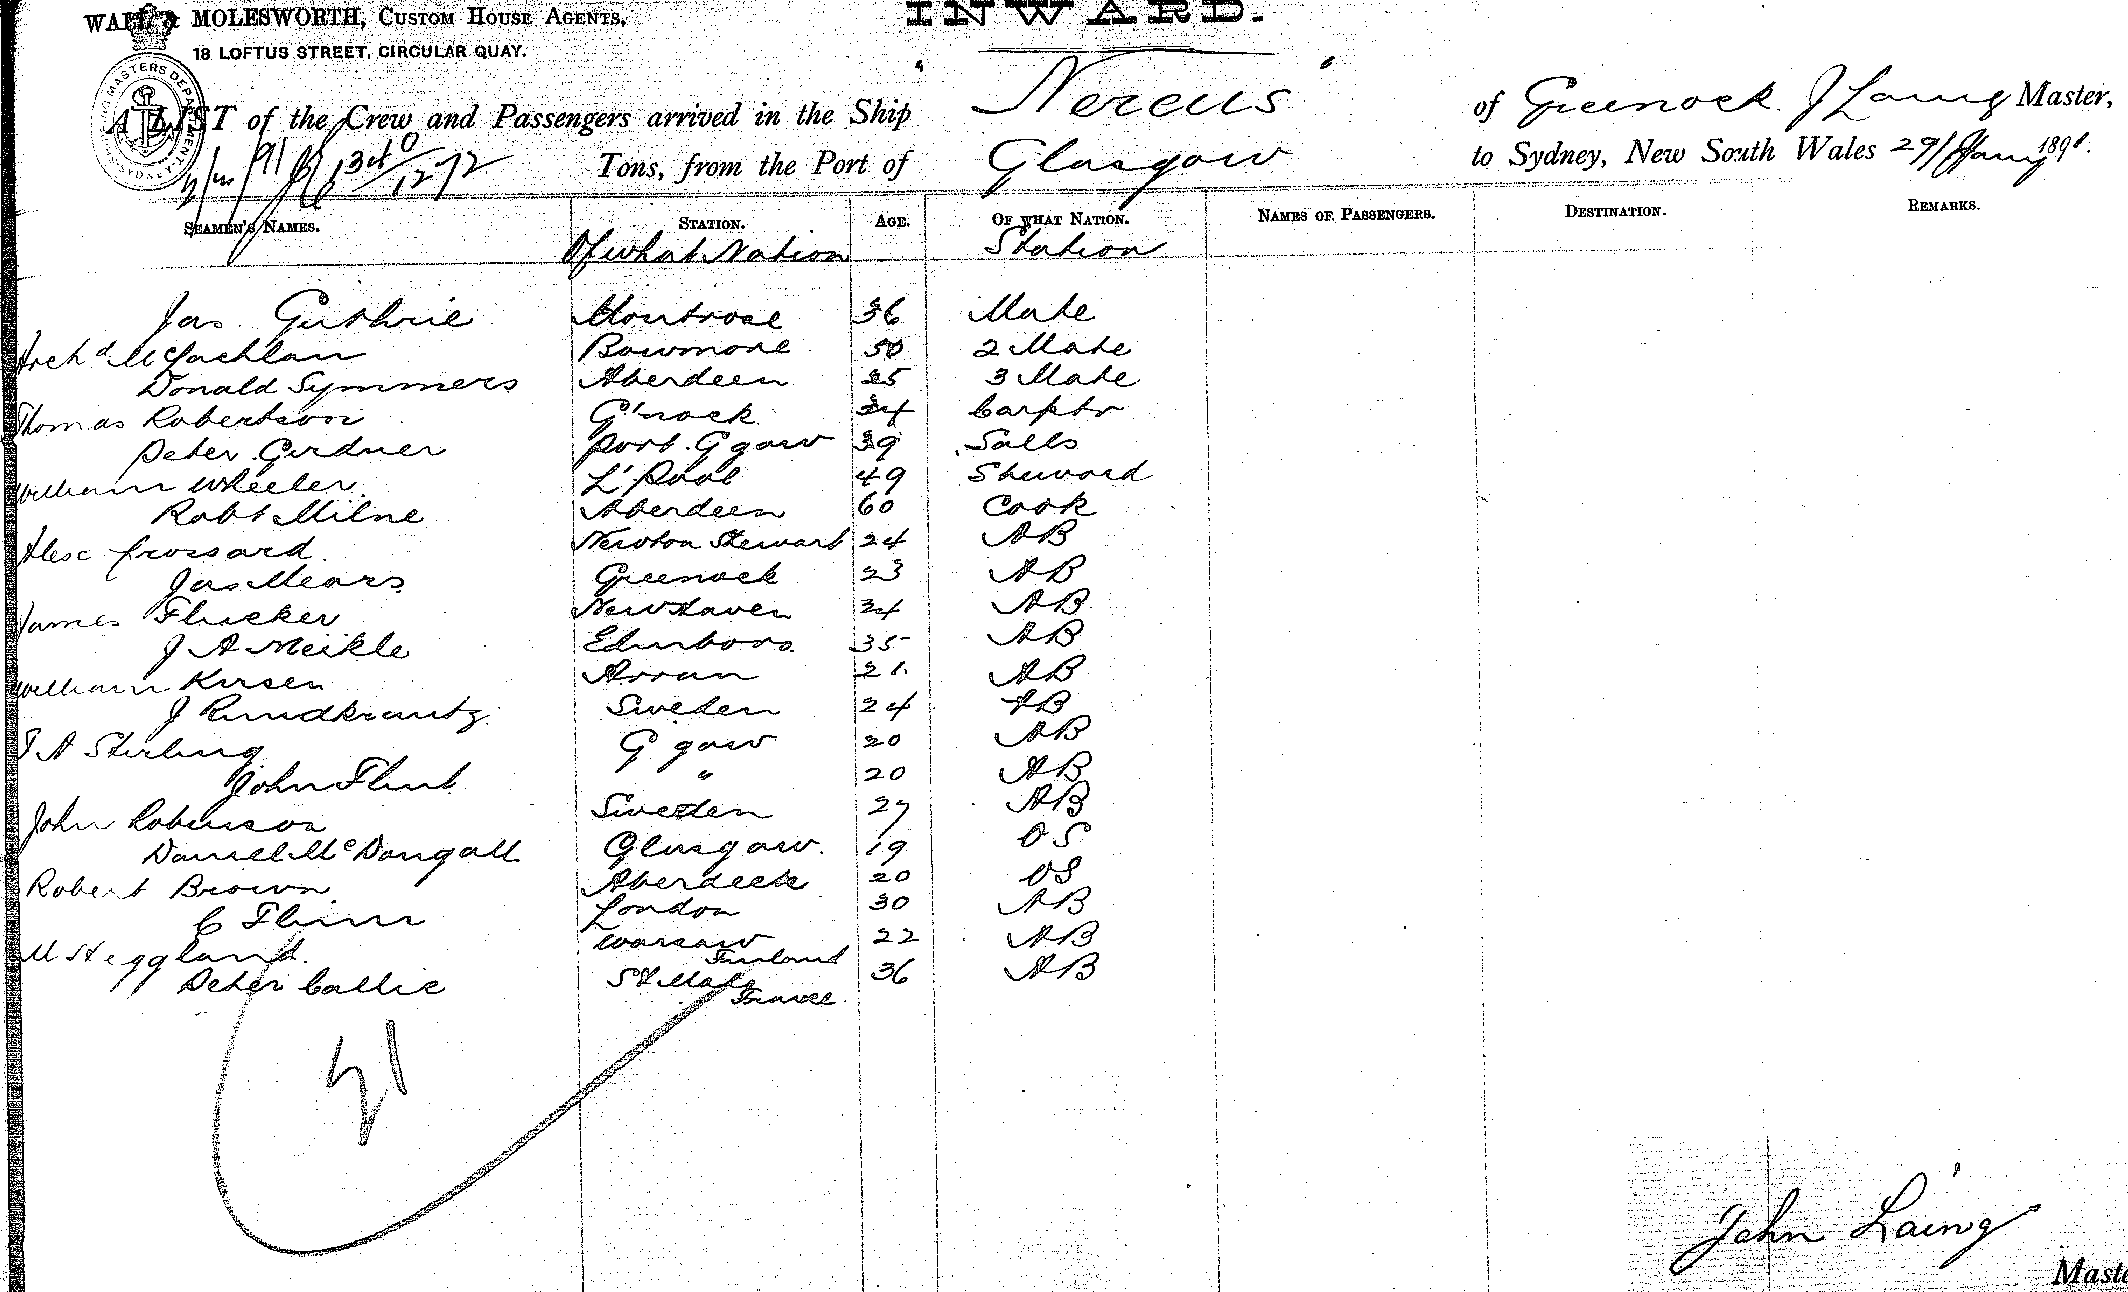 MOLESWORTH, CUSTOM HOUSE AGENTS,
18 LOFTUS STREET, CIRCULAR QUAY.
INWARD.
A LIST of the Crew and Passengers arrived in the Ship "Nereus" of Greenock J Laing Master,
Tons, from the Port of Glasgow to Sydney, New South Wales 29/Jany 1891.
SEAMEN'S NAMES. STATION. AGE. OF WHAT NATION. NAMES OF PASSENGERS. DESTINATION. REMARKS.
Of what Nation Station
Jas Guthrie Montrose 36 Mate
Archd McLachlan Bowmore 50 2 Mate
Donald Symmers Aberdeen 25 3 Mate
Thomas Robertson G'nock Carptr
Peter Girdner Port Ggow 39 Sails
William Wheeler L'Pool 49 Steward
Robt Milne Aberdeen 60 Cook
Alex Crossard Newton Stewart 24 AB
Jas Mears Greenock 23 AB
James Flucker Newhaven 34 AB
J A Meikle Edinboro 35 AB
William Kirsen Arran 21 AB
J Rundkrantz Sweden 24 AB
Stirling G gow 20 AB
John Flint " 20 AB
John Robinson Sweden 27 AB
Daniel McDougall Glasgow 19 OS
Robert Brown Aberdeen 20 OS
C London 30 AB
M Heggland Warsaw Finland 22 AB
Peter Callie St Malo France 36 AB
21
John Laing